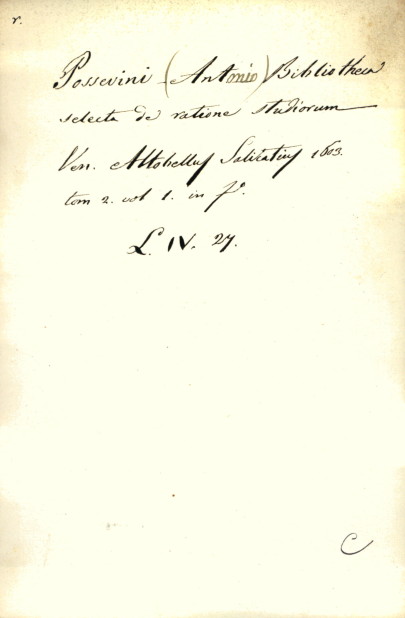 r.
Possevini (Antonio) Bibliotheca
selecta de ratione studiorum
Ven. Altobellus Salicatius 1603.
tom 2. vol 1. in fº.
L. IV. 27.
C